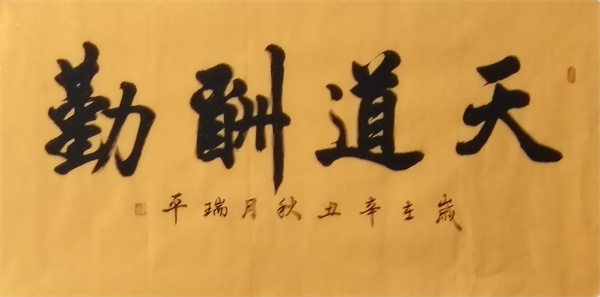 天道酬勤
歲在辛丑秋月瑞平